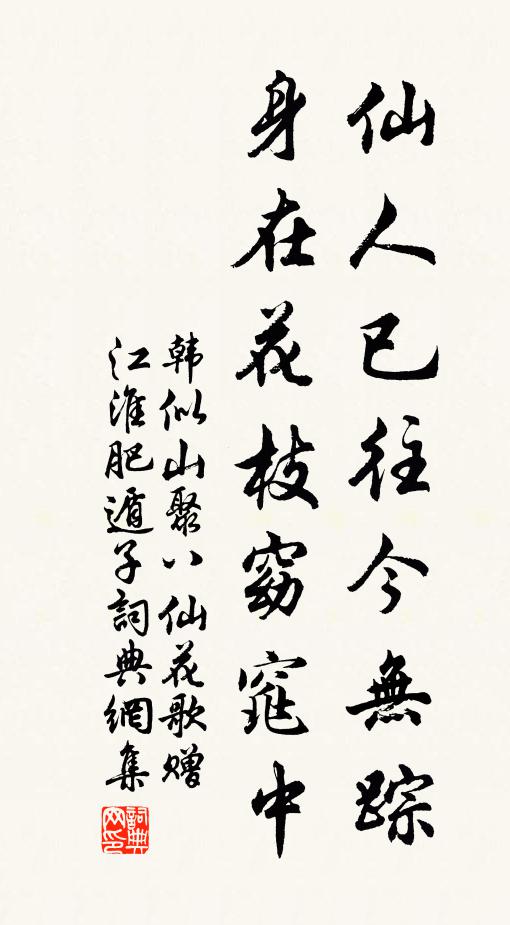 仙人已往今無踪
身在花枝窈窕中
韩似山聚八仙花歌赠
江淮肥遁子詞典網集
詞典
网印